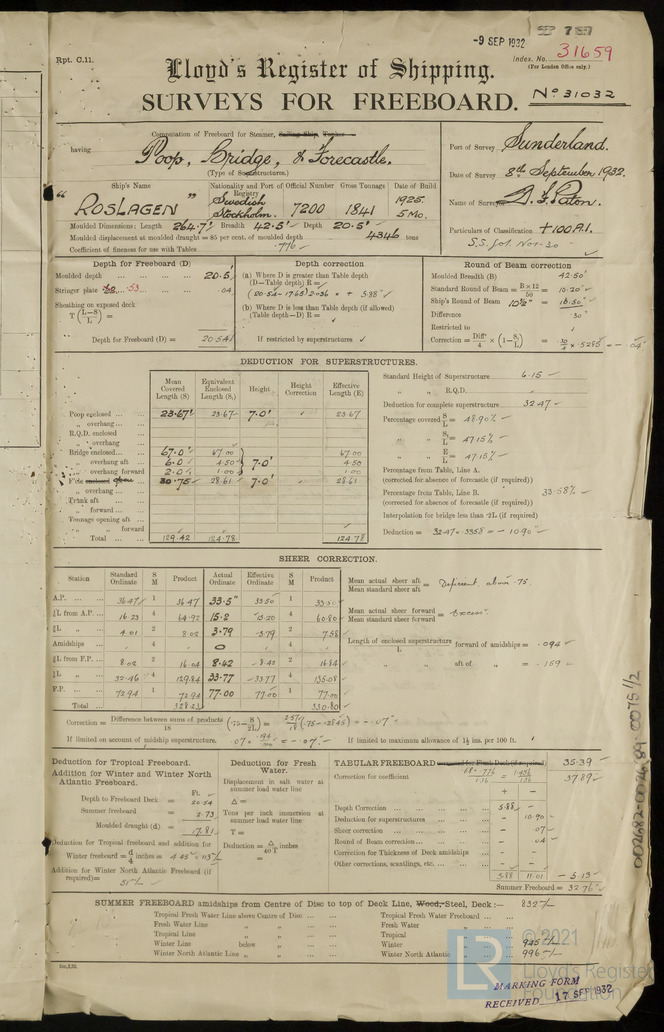 -9 SEP 1932
SEP 7
Rpt. C.11.
Index. No. 31659
(For London Office only.)
Lloyd's Register of Shipping.
SURVEYS FOR FREEBOARD.
No 31032
Computation of Freeboard for Steamer, Sailing Ship, Tanker
having Poop, Bridge, & Forecastle.
(Type of Superstructures.)
Port of Survey Sunderland.
Date of Survey 8th September 1932.
Name of Surveyor
Particulars of Classification +100A1.
Ship's Name
Nationality and Port of Registry
Official Number
Gross Tonnage
Date of Build
"ROSLAGEN"
Swedish Stockholm.
7200
1841
1925 5 Mo.
Moulded Dimensions: Length 264.7' Breadth 42.5' Depth 20.5'
Moulded displacement at moulded draught = 85 per cent. of moulded depth 4346 tons
Coefficient of fineness for use with Tables .776
Depth for Freeboard (D)
Moulded depth 20.5
Stringer plate .53 .04
Sheathing on exposed deck
T (L-S / L) =
Depth for Freeboard (D) = 20.54
Depth correction
(a) Where D is greater than Table depth
(D—Table depth) R =
(20.54-17.65) 2.036 = + 5.88"
(b) Where D is less than Table depth (if allowed)
(Table depth—D) R =
If restricted by superstructures
Round of Beam correction
Moulded Breadth (B) 42.50'
Standard Round of Beam = B × 12 / 50 = 10.20"
Ship's Round of Beam 10½" = 10.50"
Difference .30"
Restricted to
Correction = Diff / 4 × (1 - S / L) = .30 / 4 × .5285 = - .04"
DEDUCTION FOR SUPERSTRUCTURES.
Mean Covered Length (S)
Equivalent Enclosed Length (S₁)
Height
Height Correction
Effective Length (E)
Poop enclosed 23.67' 23.67 7.0' 23.67
" overhang
R.Q.D. enclosed
" overhang
Bridge enclosed 67.0 67.00 67.00
" overhang aft 6.0 4.50 7.0' 4.50
" overhang forward 2.0 1.00 1.00
F'cle enclosed open 30.75 28.61 7.0' 28.61
" overhang
Trunk aft
" forward
Tonnage opening aft
" " forward
Total 129.42 124.78 124.78
Standard Height of Superstructure 6.15
" " R.Q.D.
Deduction for complete superstructure 32.47
Percentage covered S / L = 48.90%
" " S₁ / L = 47.15%
" " E / L = 47.15%
Percentage from Table, Line A.
(corrected for absence of forecastle (if required))
Percentage from Table, Line B. 33.58%
(corrected for absence of forecastle (if required))
Interpolation for bridge less than .2L (if required)
Deduction = 32.47 × .3358 = - 10.90"
SHEER CORRECTION.
Station
Standard Ordinate
S M
Product
Actual Ordinate
Effective Ordinate
S M
Product
A.P. 36.47 1 36.47 33.5" 33.50 1 33.50
⅙L from A.P. 16.23 4 64.92 15.2 15.20 4 60.80
⅓L " 4.01 2 8.02 3.79 3.79 2 7.58
Amidships 4 0 4
⅓L from F.P. 8.02 2 16.04 8.42 8.42 2 16.84
⅙L " 32.46 4 129.84 33.77 33.77 4 135.08
F.P. 72.94 1 72.94 77.00 77.00 1 77.00
Total 328.23 330.80
Mean actual sheer aft / Mean standard sheer aft = Deficient above .75
Mean actual sheer forward / Mean standard sheer forward = Excess
Length of enclosed superstructure / L forward of amidships = .094
" " aft of " = .159
Correction = Difference between sums of products / 18 (.75 - S / 2L) = 2.57 / 18 (.75 - .2445) = - .07"
If limited on account of midship superstructure. .07 × .194 / .200 = - .07"
If limited to maximum allowance of 1½ ins. per 100 ft.
Deduction for Tropical Freeboard.
Addition for Winter and Winter North Atlantic Freeboard.
Ft.
Depth to Freeboard Deck = 20.54
Summer freeboard = 2.73
Moulded draught (d) = 17.81
Deduction for Tropical freeboard and addition for
Winter freeboard = d / 4 inches = 4.45" = 113
Addition for Winter North Atlantic Freeboard (if required) =
51
Deduction for Fresh Water.
Displacement in salt water at summer load water line
Δ =
Tons per inch immersion at summer load water line
T =
Deduction = Δ / 40T inches
=
TABULAR FREEBOARD corrected for Flush Deck (if required) 35.39
Correction for coefficient .68+.776 / 1.36 = 1.456 / 1.36 37.89
+ -
Depth Correction 5.88 -
Deduction for superstructures - 10.90
Sheer correction - .07
Round of Beam correction - .04
Correction for Thickness of Deck amidships - -
Other corrections, scantlings, etc. - -
5.88 11.01 - 5.13
Summer Freeboard = 32.76"
SUMMER FREEBOARD amidships from Centre of Disc to top of Deck Line, Wood, Steel, Deck:— 832
Tropical Fresh Water Line above Centre of Disc
Fresh Water Line " "
Tropical Line " "
Winter Line below "
Winter North Atlantic Line " "
Tropical Fresh Water Freeboard
Fresh Water "
Tropical "
Winter " 945
Winter North Atlantic " 996
002682-002689-0075 1/2
LR
© 2021
Lloyd's Register
Foundation
MARKING FORM
RECEIVED 17 SEP 1932